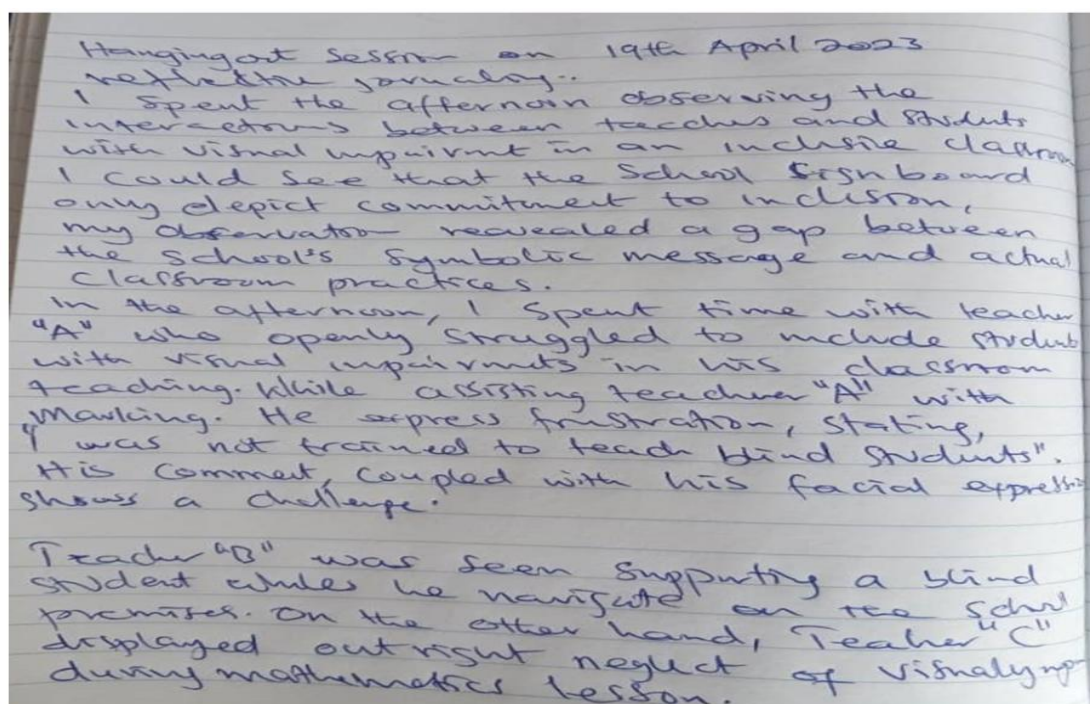 Hangingout Session on 19th April 2023
reflective journaling..
I spent the afternoon observing the
interactions between teaches and students
with visual impairmt in an inclusie classroom
I could see that the School sign board
only depict commitment to inclusion,
my observation revealed a gap between
the school's symbolic message and actual
classroom practices.
In the afternoon, I spent time with teacher
"A" who openly struggled to include student
with visual impairmts in his classroom
teaching. While assisting teacher "A" with
marking. He express frustration, stating,
"I was not trained to teach blind students".
His comment, coupled with his facial expressi
shows a challenge.
Teacher "B" was seen supporting a blind
student whiles he navigate on the schol
premises. On the other hand, Teacher "C"
displayed outright neglect of visualyimp
during mathematics lesson.